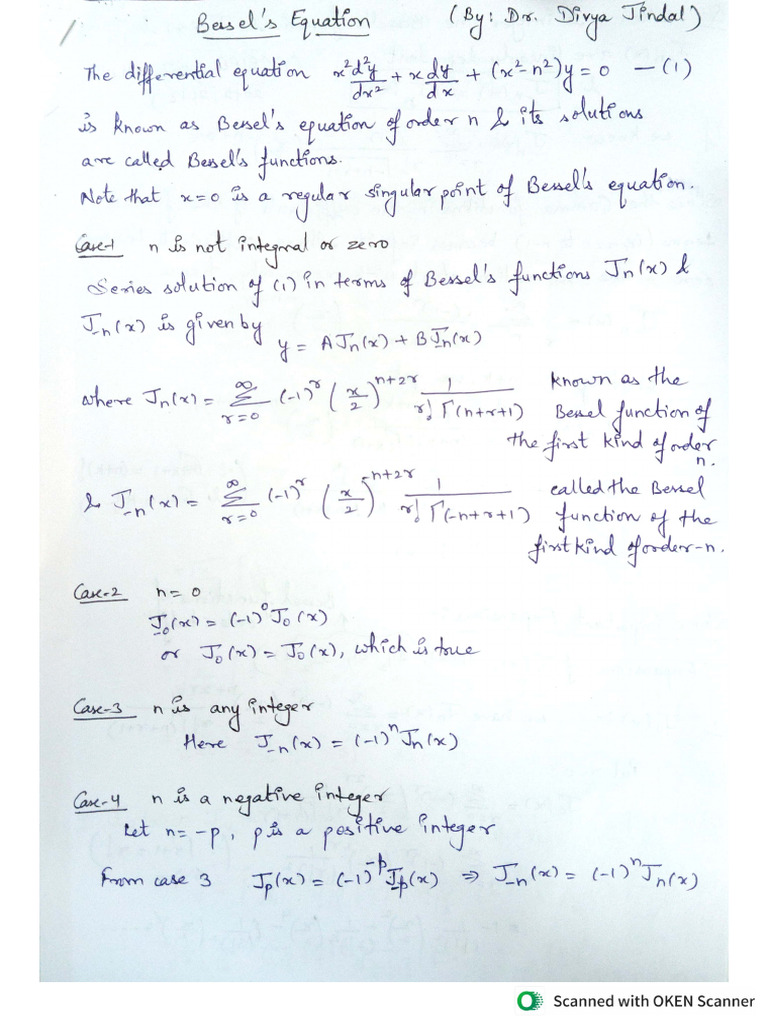 Bessel's Equation (By: Dr. Divya Jindal)
The differential equation x²d²y/dx² + x dy/dx + (x²-n²)y = 0 — (1)
is known as Bessel's equation of order n & its solutions
are called Bessel's functions.
Note that x=0 is a regular singular point of Bessel's equation.
Case-1 n is not integral or zero
Series solution of (1) in terms of Bessel's functions Jn(x) &
J-n(x) is given by
y = AJn(x) + BJ-n(x)
where Jn(x) = ∞∑r=0 (-1)^r (x/2)^n+2r 1/r! Γ(n+r+1) known as the
Bessel function of
the first kind of order
n.
& J-n(x) = ∞∑r=0 (-1)^r (x/2)^-n+2r 1/r! Γ(-n+r+1) called the Bessel
function of the
first kind of order-n.
Case-2 n=0
J-0(x) = (-1)^0 J0(x)
or J0(x) = J0(x), which is true
Case-3 n is any integer
Here J-n(x) = (-1)^n Jn(x)
Case-4 n is a negative integer
Let n=-p, p is a positive integer
From case 3 Jp(x) = (-1)^-p J-p(x) ⇒ J-n(x) = (-1)^n Jn(x)
Scanned with OKEN Scanner